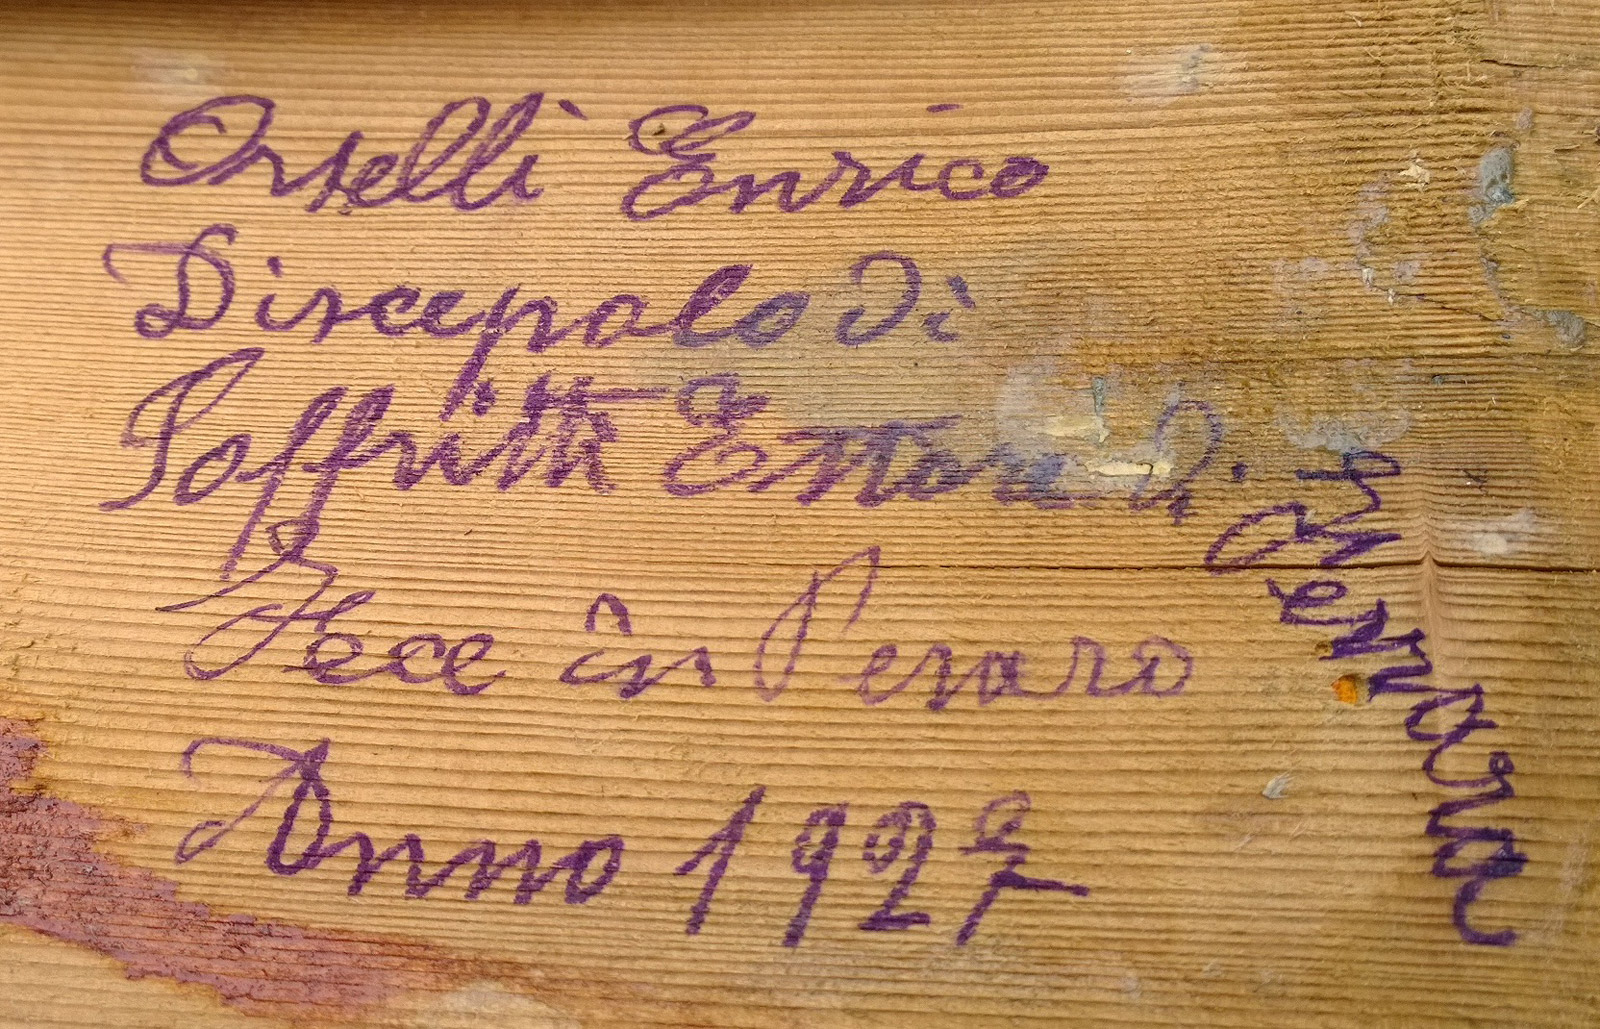 Orselli Enrico
Discepolo di
Soffritti Ettore di Ferrara
Fece in Pesaro
Anno 1927